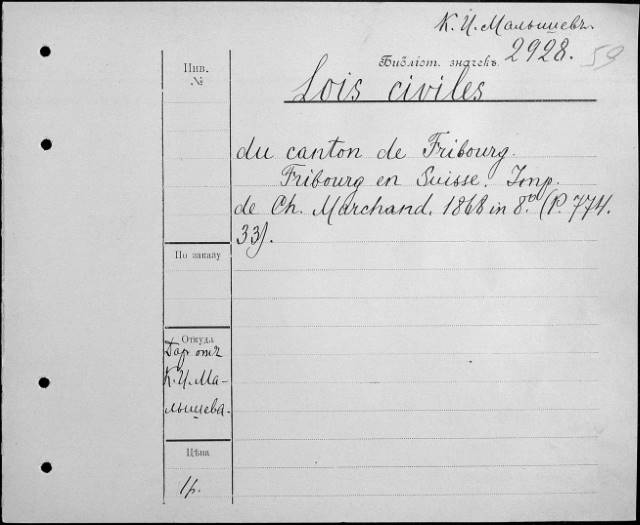 К. И. Малышевъ.
Библіот. значекъ 2928. 59
Инв.
№
Lois civiles
du canton de Fribourg.
Fribourg en Suisse. Imp.
de Ch. Marchand. 1868 in 8.vo (P. 774.
33).
По заказу
Откуда
Дар отъ
К. И. Ма-
лышева.
Цѣна
1р.